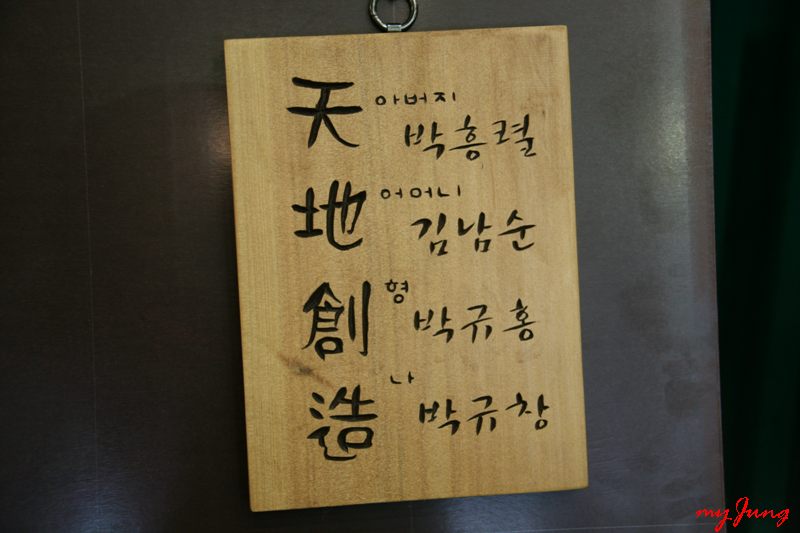 天 아버지
박흥렬
地 어머니
김남순
創 형
박규홍
造 나
박규창
myJung